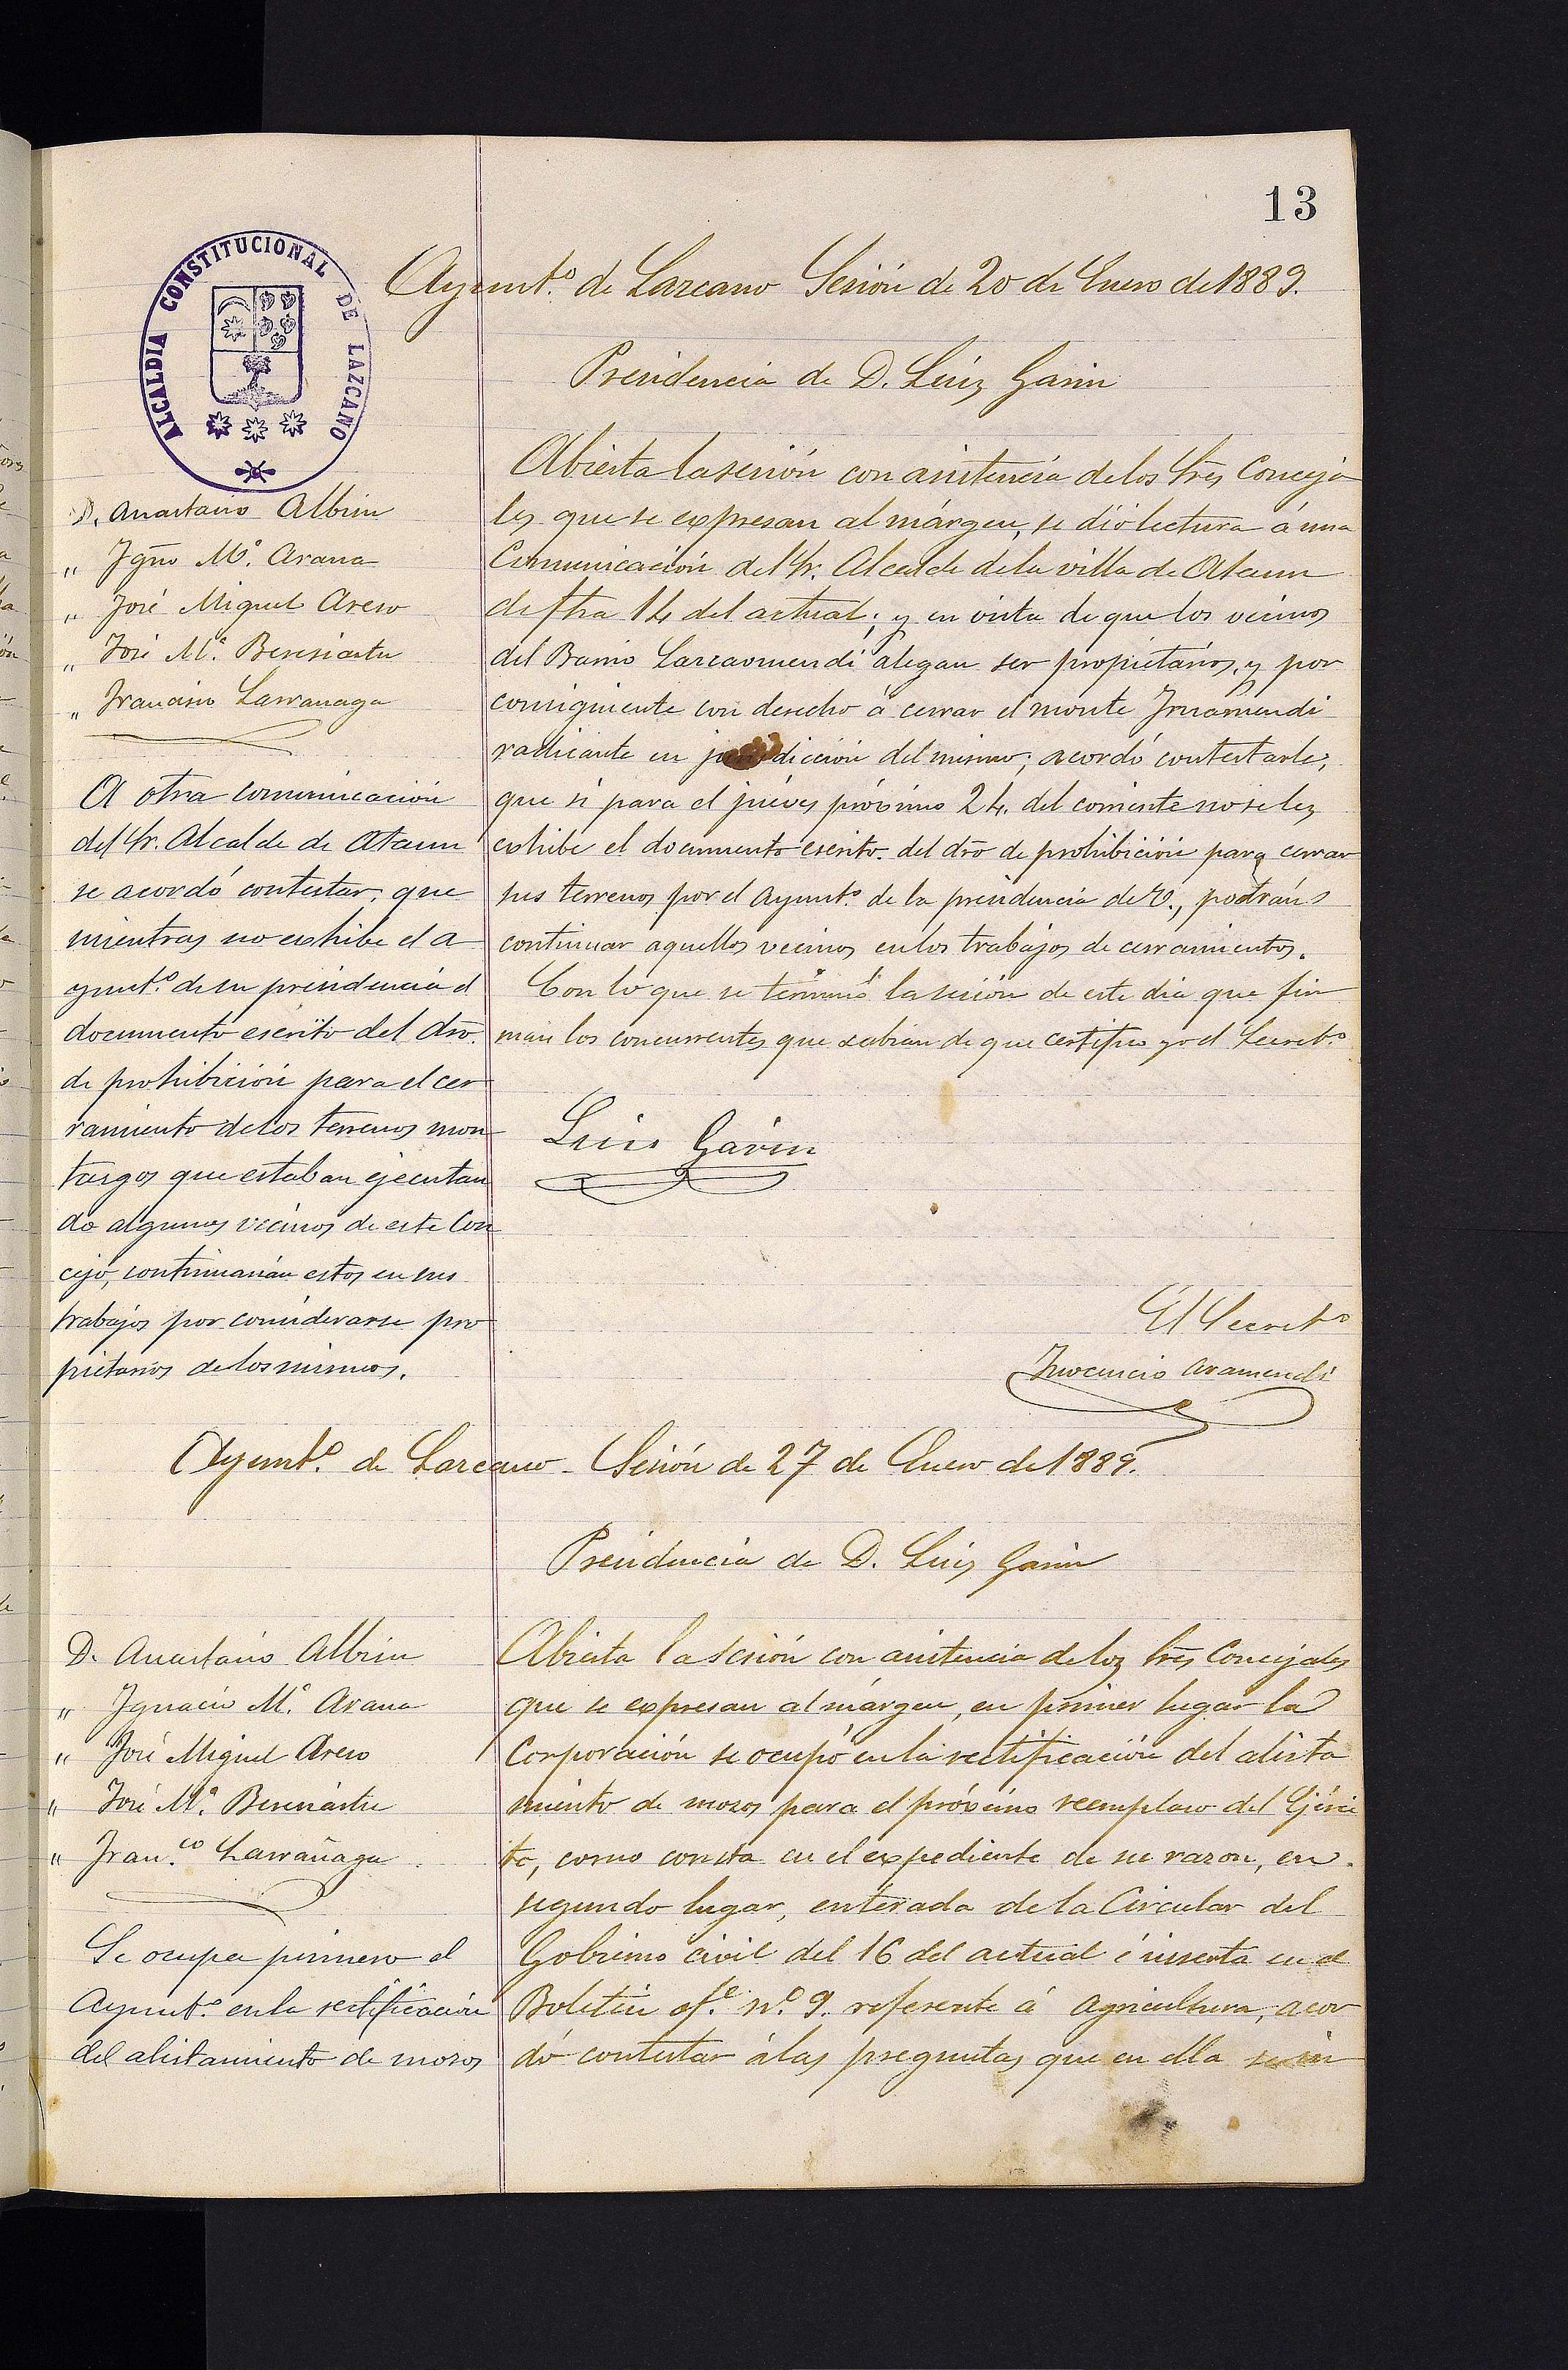 13
ALCALDIA CONSTITUCIONAL DE LAZCANO
Ayumt.º de Lazcano Sesión de 20 de Enero de 1889.
Presidencia de D. Luis Garin
D. Anastasio Albisu
„ Ygnº M.ª Arana
„ José Miguel Areso
„ José M.ª Beresiartu
„ Francisco Larrañaga
A otra comunicación
del Sr. Alcalde de Ataun
se acordó contestar, que
mientras no exhibe el A
yumt.º de su presidencia el
documento escrito del dro.
de prohibición para el cer
ramiento de los terrenos mon
tazgos que estaban ejecutan
do algunos vecinos de este Con
cejo, continuarán estos en sus
trabajos por considerarse pro
pietarios de los mismos.
Abierta la sesión con asistencia de los Sres Conceja
les que se expresan al márgen, se dió lectura á una
Comunicación del Sr. Alcalde de la villa de Ataun
de fha 14 del actual; y en vista de que los vecinos
del Barrio Lazcaomendi alegan ser propietarios, y por
consiguiente con derecho á cerrar el monte Yruamendi
radicante en jurisdicción del mismo; acordó contestarle,
que si para el juéves próximo 24. del corriente no se les
exhibe el documento escrito. del dro de prohibición para cerrar
sus terrenos por el Ayumt.º de la presidencia de V., podrán
continuar aquellos vecinos en los trabajos de cerramientos.
Con lo que se terminó la sesión de este dia que fir
man los concurrentes que sabian de que certifico yo el Secret.º
Luis Garin
El Secret.º
Inocencio Aramendi
Ayumt.º de Lazcano - Sesión de 27 de Enero de 1889.
Presidencia de D. Luis Garin
D. Anastasio Albisu
„ Ygnacio M.ª Arana
„ José Miguel Areso
„ José M.ª Beresiartu
„ Fran.co Larrañaga
Se ocupa primero el
Ayumt.º en la rectificación
del alistamiento de mozos
Abierta la Sesión con asistencia de los Sres Concejales
que se expresan al márgen, en primer lugar la
Corporación se ocupó en la rectificación del alista
miento de mozos para el próximo reemplazo del Ejérci
to, como consta en el expediente de su razon, en
segundo lugar, enterada de la Circular del
Gobierno civil del 16 del actual é inserta en el
Boletin of.e n.º 9. referente á agricultura, acor
dó contestar á las preguntas que en ella se in